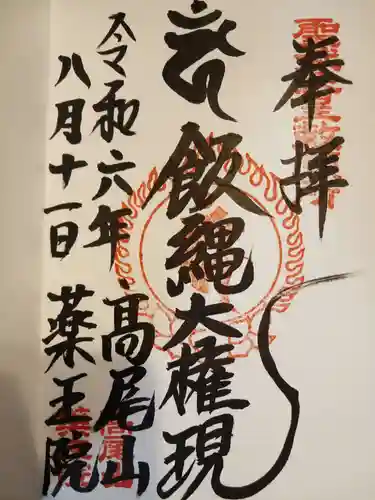 奉拝
飯縄大権現
令和六年
八月十一日
高尾山
薬王院